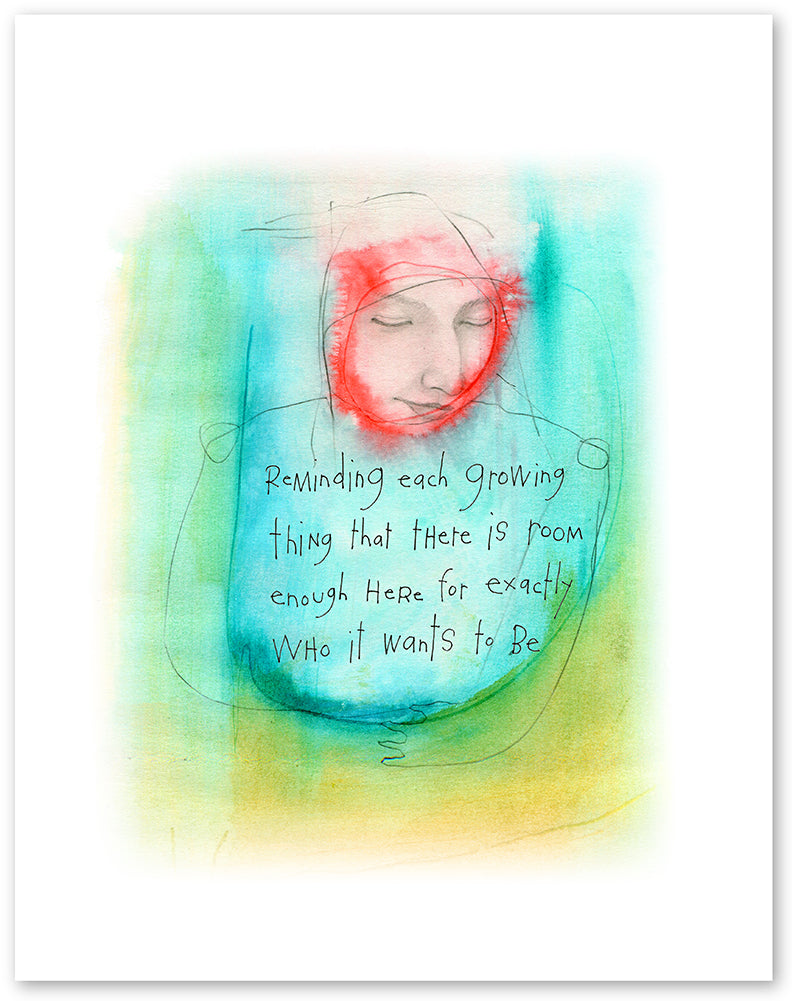 ReMinding each growing
thiNg that tHere is rooM
enough HeRe for exactly
WHo it wants to Be